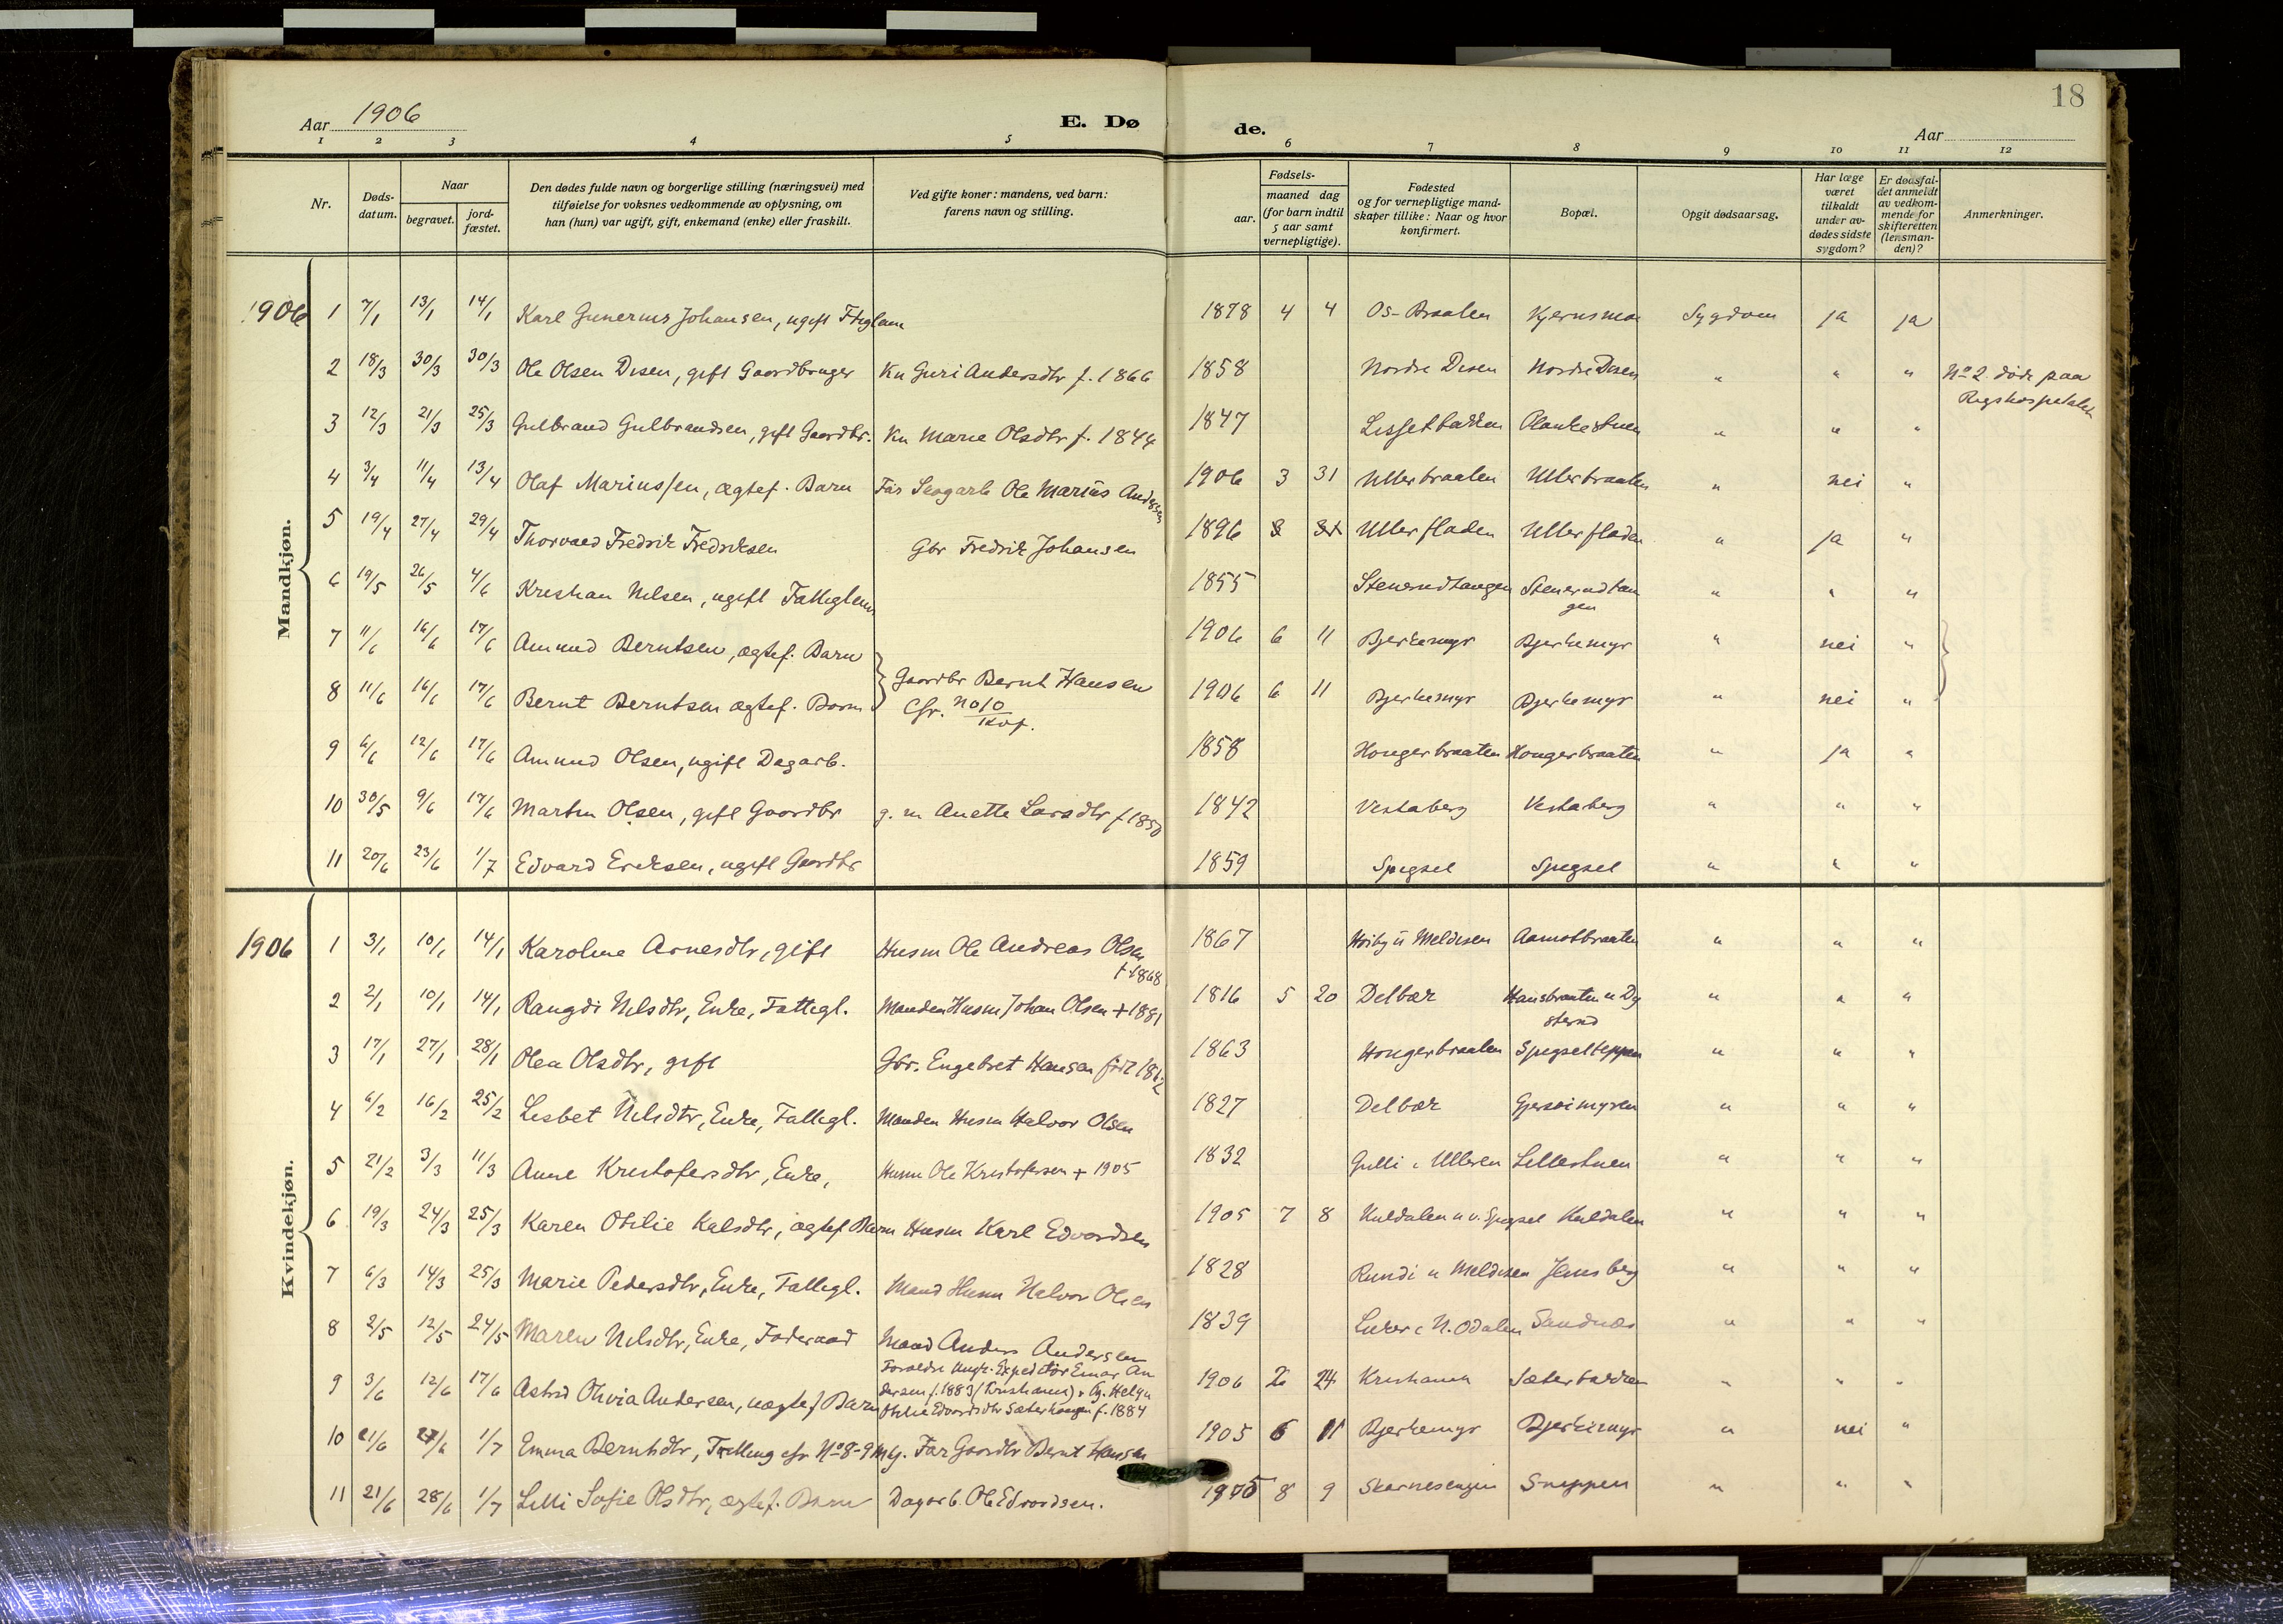 18
Aar 1906
E. Dø
de.
Aar
1 2 3 4 5 6 7 8 9 10 11 12
Nr.
Døds-
datum.
Naar
begravet.
jord-
fæstet.
Den dødes fulde navn og borgerlige stilling (næringsvei) med
tilføielse for voksnes vedkommende av oplysning, om
han (hun) var ugift, gift, enkemand (enke) eller fraskilt.
Ved gifte koner: mandens, ved barn:
farens navn og stilling.
Fødsels-
aar.
maaned dag
(for barn indtil
5 aar samt
vernepligtige).
Fødested
og for vernepligtige mand-
skaper tillike: Naar og hvor
konfirmert.
Bopæl.
Opgit dødsaarsag.
Har læge
været
tilkaldt
under av-
dødes sidste
sygdom?
Er dødsfal-
det anmeldt
av vedkom-
mende for
skifteretten
(lensman-
den)?
Anmerkninger.
Mandkjøn.
1906 1 7/1 13/1 14/1 Karl Gunerius Johansen, ugift 1878 4 4 Os-Braaten Kjernsmoe Sygdom ja ja
2 18/3 30/3 30/3 Ole Olsen Disen, gift Gaardbruger Kn Guri Andersdtr f. 1866 1858 Nordre Disen Nordre Disen " " " No 2 døde paa
Rigshospitalet
3 12/3 21/3 25/3 Gulbrand Gulbrandsen, gift Gaardbr. Kn Marie Olsdtr f. 1844 1847 Lissetbakken " " "
4 3/4 11/4 13/4 Olaf Marinssen, ægtef. Barn Far Skogarb Ole Marius Andersen 1906 3 31 Ullerbraaten Ullerbraaten " nei "
5 19/4 27/4 29/4 Thorvald Fredrik Fredriksen Gbr Fredrik Johansen 1896 Ullerfladen Ullerfladen " ja "
6 19/5 26/5 4/6 Kristian Nilsen, ugift Fattiglem 1855 Stenerudtangen Stenerudtan
gen " " "
7 11/6 16/6 17/6 Amund Berntsen, ægtef. Barn 1906 6 11 Bjerkemyr Bjerkemyr " nei "
Gaardbr Bernt Hansen
8 11/6 16/6 17/6 Bernt Berntsen ægtef. Barn Cfr. No 10 1906 6 11 Bjerkemyr Bjerkemyr " nei "
9 6/6 12/6 17/6 Amund Olsen, ugift Dagarb. 1858 Hongerbraaten Hongerbraaten " ja "
10 30/5 9/6 17/6 Martin Olsen, gift Gaardbr g. m Anette Larsdtr f 1850 1842 Vestaberg Vestaberg " " "
11 20/6 23/6 1/7 Edvard Eriksen, ugift Gaardbr 1859 Spigset Spigset " " "
Kvindekjøn.
1906 1 3/1 10/1 14/1 Karoline Arnesdtr, gift Husm Ole Andreas Olsen
f 1868 1867 Høiby u Meldisen Aamotbraaten " " "
2 2/1 10/1 14/1 Rangdi Nilsdtr, Enke, Fattigl. Manden Husm Johan Olsen + 1881 1816 5 20 Delbæk Hansbraaten u Dy
sterud " " "
3 17/1 27/1 28/1 Olea Olsdtr, gift Gbr. Engebret Hansen født 1862 1863 Hongerbraaten Spigseteppen " " "
4 6/2 16/2 25/2 Lisbet Nilsdtr, Enke, Fattigl. Manden Husm Halvor Olsen 1827 Delbæk Gjersøimyren " " "
5 21/2 3/3 11/3 Anne Kristofersdtr, Enke, Husm Ole Kristofersen + 1905 1832 Gulli i Ulleren Lillestuen " " "
6 19/3 24/3 25/3 Karen Otilie Kalsdtr, ægtef Barn Husm Karl Edvardsen 1905 7 8 Kuldalen u v. Spigset Kuldalen " " "
7 6/3 14/3 25/3 Marie Pedersdtr, Enke, Fattigl. Mand Husm Halvor Olsen 1828 Rundi u Meldisen Jensberg " " "
8 2/5 12/5 24/5 Maren Nilsdtr, Enke, Foderaad Mand Anders Andersen 1839 N. Odalen Sandnæs " " "
9 3/6 12/6 17/6 Astrid Olivia Andersen, uægtef Barn Foreldre Ungk. Expeditør Einar An
dersen f. 1883 (Kristiania) & Pg. Helga
Otilie Edvardsdtr Sæterhaugen f. 1884 1906 2 24 Kristiania Sæterbakken " " "
10 21/6 27/6 1/7 Emma Berntsdtr, Tvilling cfr No 8-9 Far Gaardbr Bernt Hansen 1905 6 11 Bjerkemyr Bjerkemyr " nei "
11 21/6 28/6 1/7 Lilli Sofie Olsdtr, ægtef. Barn Dagarb. Ole Edvardsen. 1905 8 9 Skarnesengen Sneppen " " "